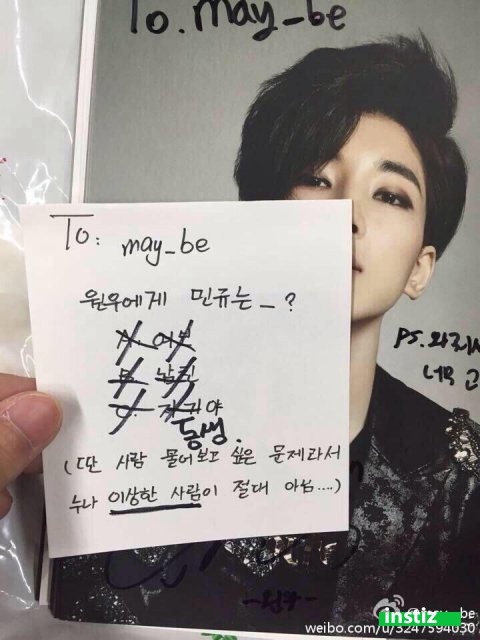 To. may_be
To: may_be
원우에게 민규는 _ ?
A. 여보
B. 남친
C. 자기야
동생.
(딴 사람 물어보고 싶은 문제라서
누나 이상한 사람이 절대 아님....)
PS. 와줘서
너무 고
-원우-
instiz
weibo.com/u/3247594030